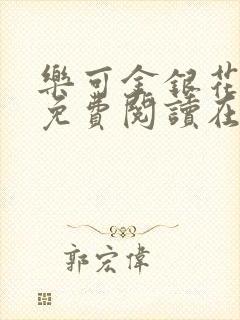 樂可金銀花
免費閱讀在
郭宏偉